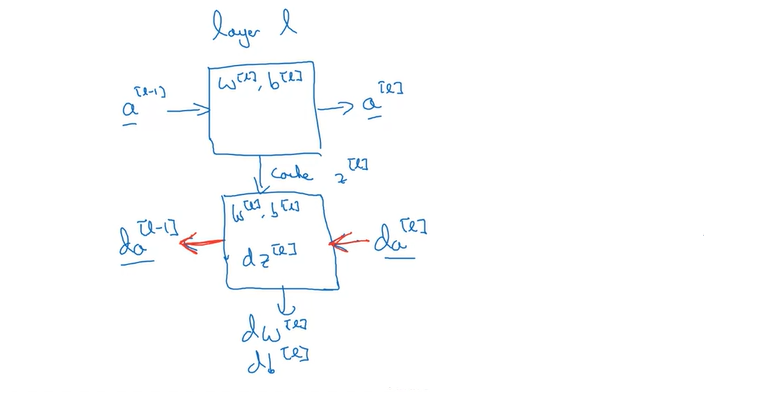 layer l
a^[l-1]
w^[l], b^[l]
a^[l]
cache z^[l]
da^[l-1]
w^[l], b^[l]
dz^[l]
da^[l]
dw^[l]
db^[l]